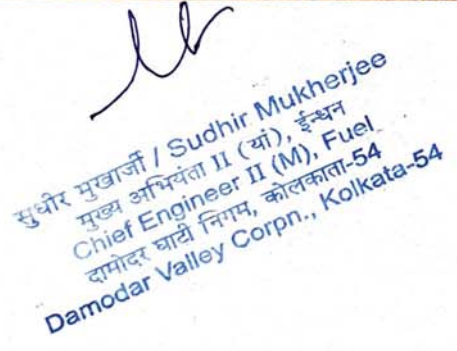 सुधीर मुखार्जी / Sudhir Mukherjee
मुख्य अभियंता II (यां), ईन्धन
Chief Engineer II (M), Fuel
दामोदर घाटी निगम, कोलकाता-54
Damodar Valley Corpn., Kolkata-54